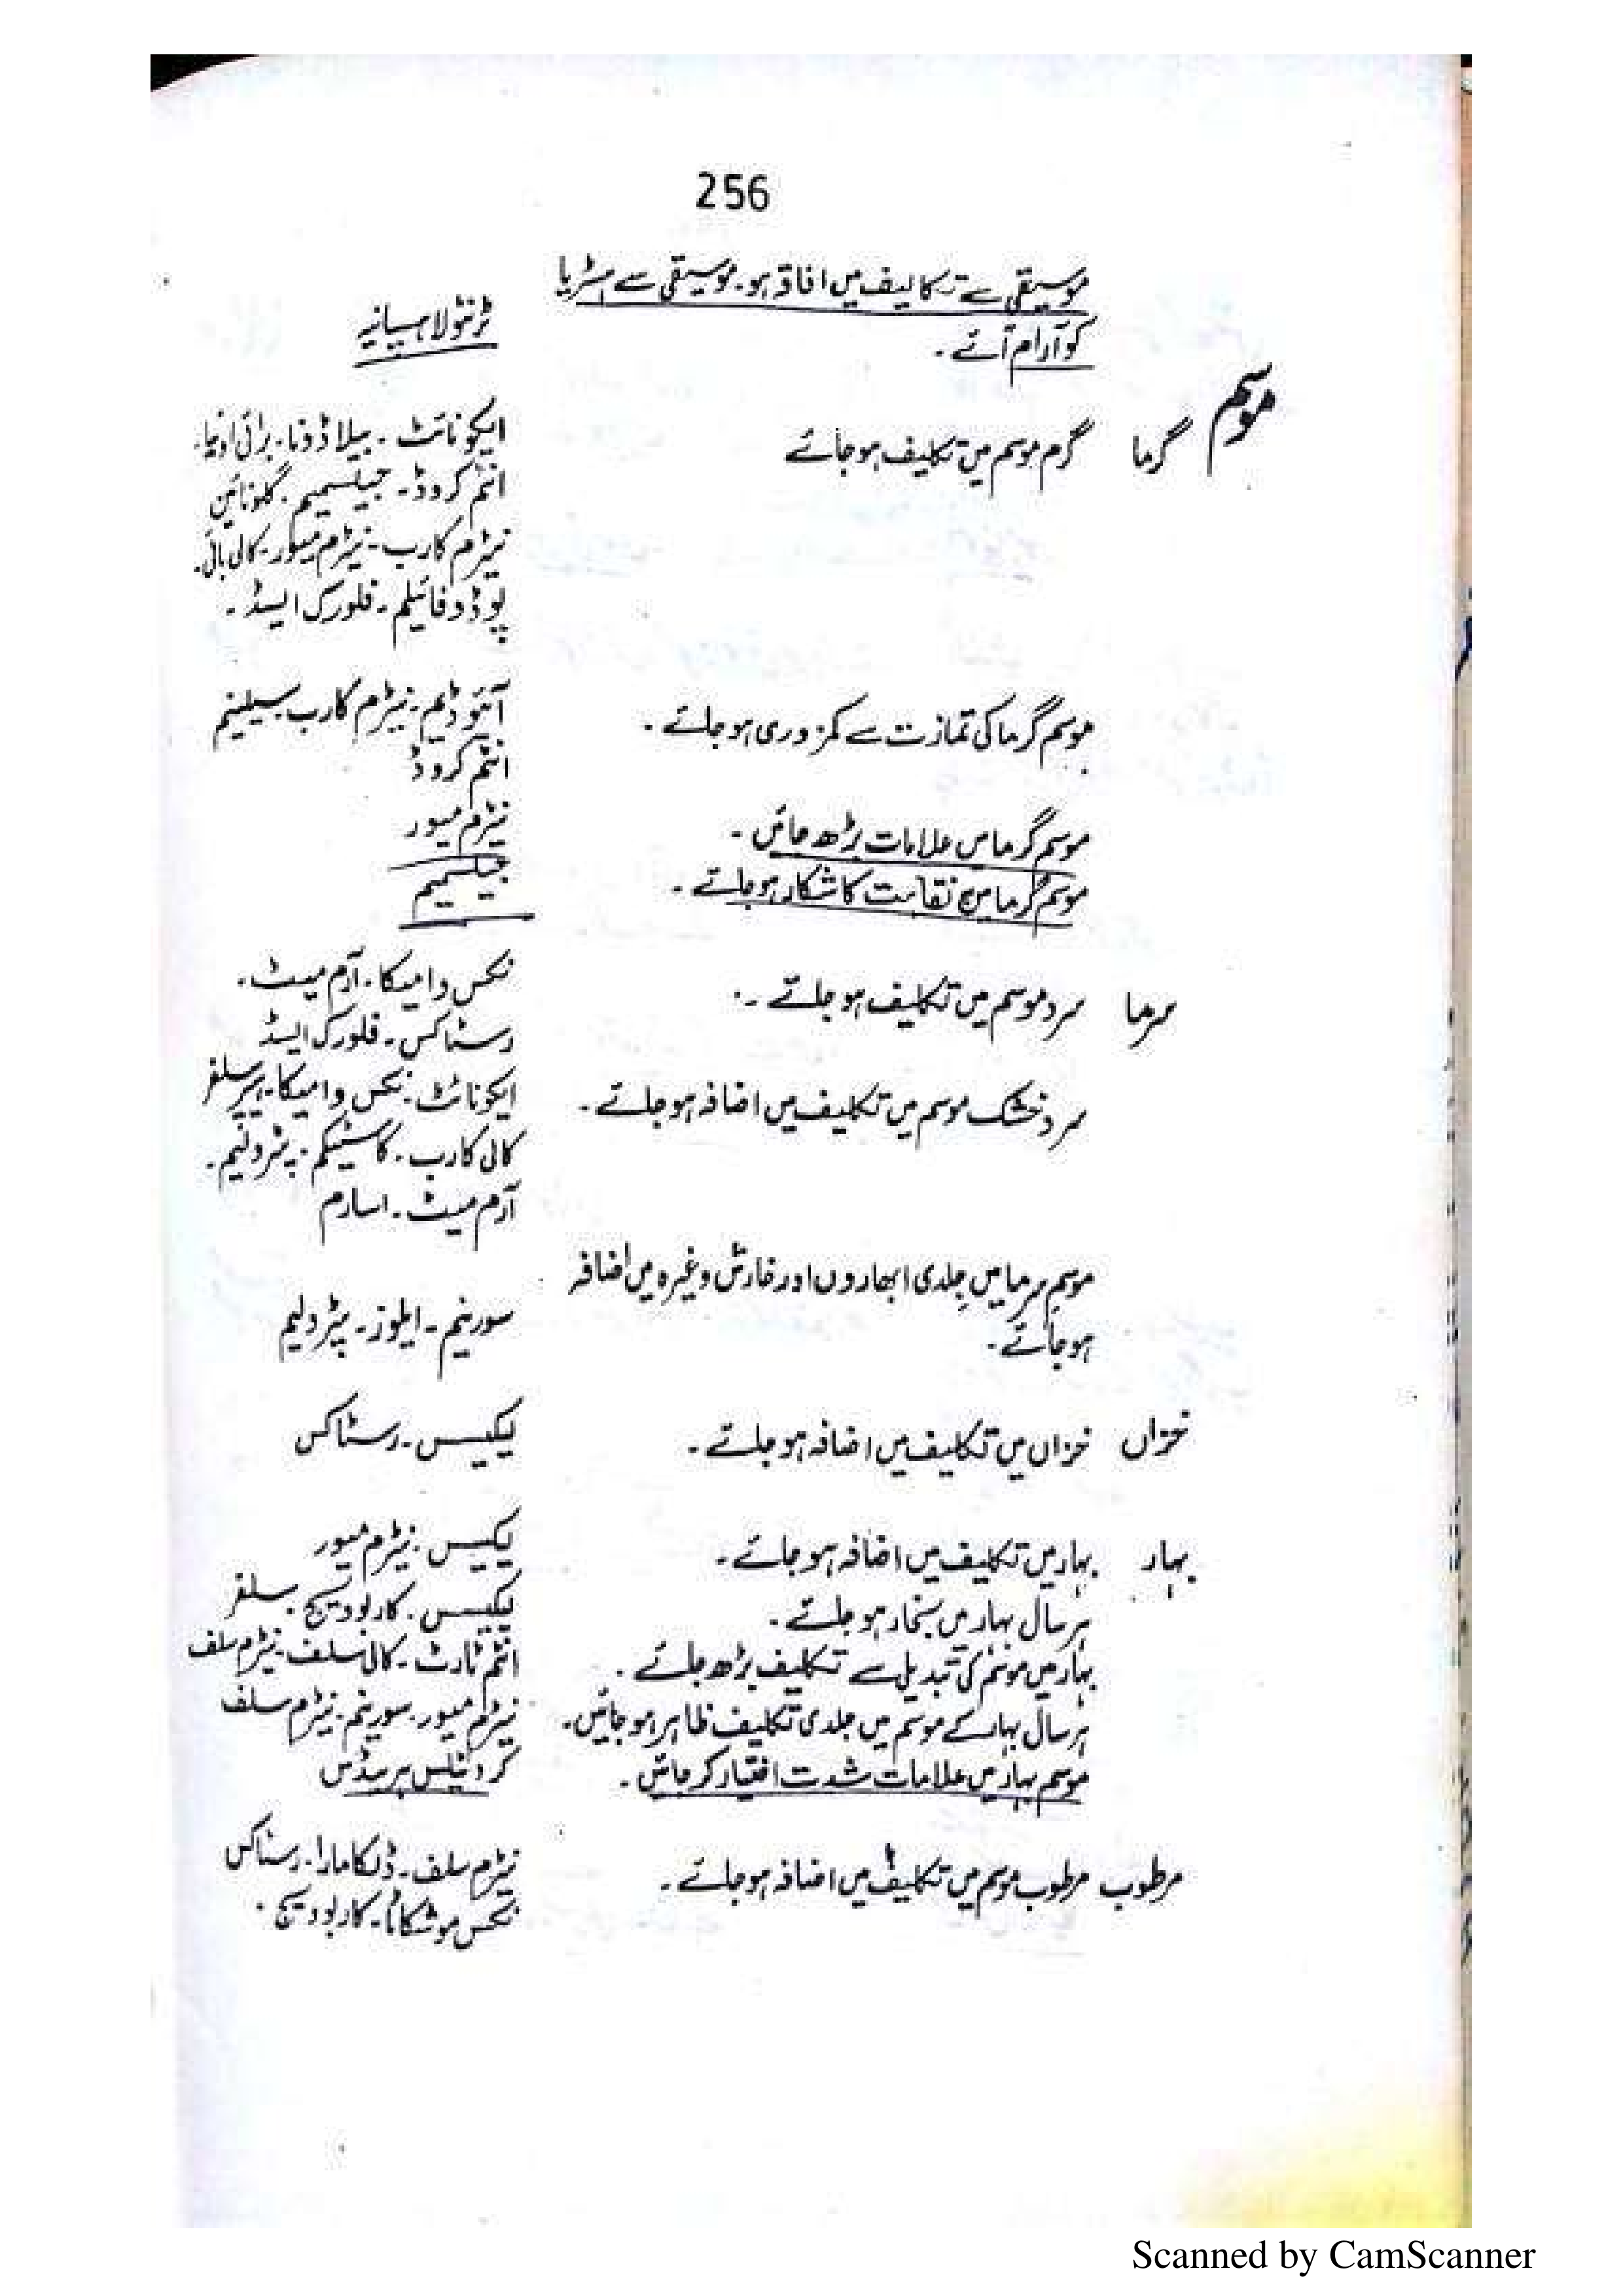 256
موسیقی سے تکالیف میں افاقہ ہو۔ موسیقی سے ہسٹریا
کو آرام آئے۔
ٹرنٹولا ہسپانیہ
موسم
گرما گرم موسم میں تکلیف ہو جائے
ایکونائٹ۔ بیلاڈونا۔ برائی اونیا۔
انٹم کروڈ۔ جیلسمیم۔ گلونائین
نیٹرم کارب۔ نیٹرم میور۔ کالی بائی۔
پوڈوفائیلم۔ فلورک ایسڈ۔
موسم گرما کی تمازت سے کمزوری ہو جائے۔
آئیوڈیم۔ نیٹرم کارب۔ سیلینیم
انٹم کروڈ
موسم گرما میں علامات بڑھ جائیں۔
نیٹرم میور
موسم گرما میں نقاہت کا شکار ہو جائے۔
جیلسمیم
سرما سرد موسم میں تکلیف ہو جائے۔
نکس وامیکا۔ آرم میٹ۔
رسٹاکس۔ فلورک ایسڈ
سرد خشک موسم میں تکلیف میں اضافہ ہو جائے۔
ایکونائٹ۔ نکس وامیکا۔ ہیپر سلفر
کالی کارب۔ کاسٹیکم۔ پٹرولیم۔
آرم میٹ۔ اسارم
موسم سرما میں جلدی ابھاروں اور خارش وغیرہ میں اضافہ
ہو جائے۔
سورینم۔ ایلوز۔ پٹرولیم
خزاں خزاں میں تکلیف میں اضافہ ہو جائے۔
لیکیسس۔ رسٹاکس
بہار بہار میں تکلیف میں اضافہ ہو جائے۔
لیکیسس۔ نیٹرم میور
ہر سال بہار میں بخار ہو جائے۔
لیکیسس۔ کاربوویج۔ سلفر
بہار میں موسم کی تبدیلی سے تکلیف بڑھ جائے۔
انٹم ٹارٹ۔ کالی سلف۔ نیٹرم سلف
ہر سال بہار کے موسم میں جلدی تکلیف ظاہر ہو جائیں۔
نیٹرم میور۔ سورینم۔ نیٹرم سلف
موسم بہار میں علامات شدت اختیار کر جائیں۔
کروٹیلس ہریڈس
مرطوب مرطوب موسم میں تکلیف میں اضافہ ہو جائے۔
نیٹرم سلف۔ ڈلکامارا۔ رسٹاکس
نکس موشکاٹا۔ کاربوویج۔
Scanned by CamScanner